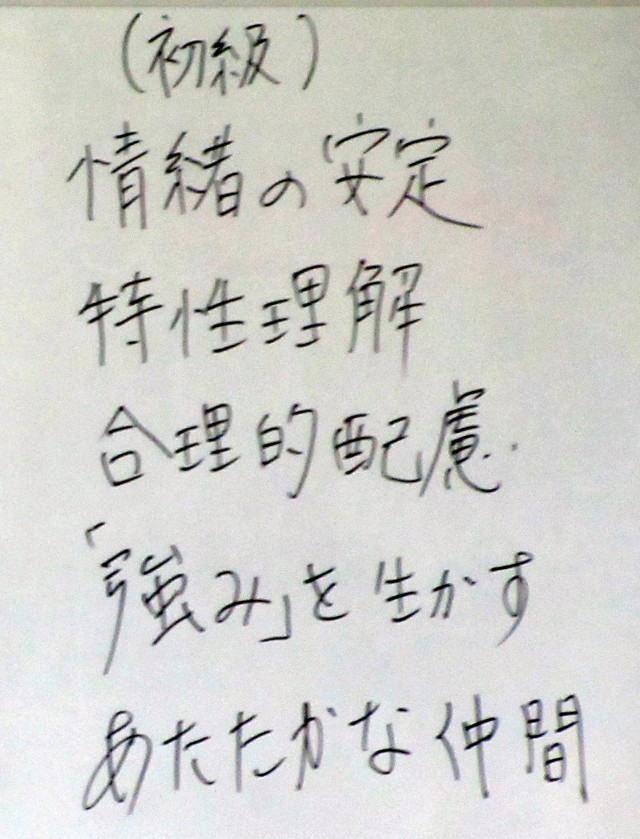 (初級)
情緒の安定
特性理解
合理的配慮
「強み」を生かす
あたたかな仲間